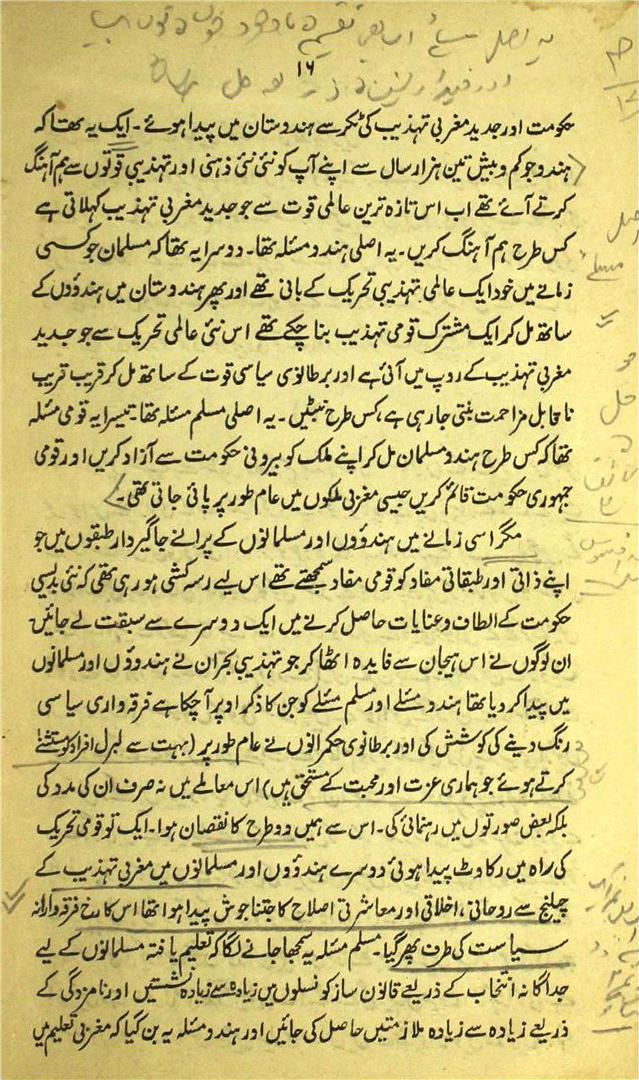 ۱۶
حکومت اور جدید مغربی تہذیب کی ٹکر سے ہندوستان میں پیدا ہوئے۔ ایک یہ تھا کہ
ہندو جو کم و بیش تین ہزار سال سے اپنے آپ کو نئی نئی ذہنی اور تہذیبی قوتوں سے ہم آہنگ
کرتے آئے تھے اب اس تازہ ترین عالمی قوت سے جو جدید مغربی تہذیب کہلاتی ہے
کس طرح ہم آہنگ کریں۔ یہ اصلی ہندو مسئلہ تھا۔ دوسرا یہ تھا کہ مسلمان جو کسی
زمانے میں خود ایک عالمی تہذیبی تحریک کے بانی تھے اور پھر ہندوستان میں ہندوؤں کے
ساتھ مل کر ایک مشترک قومی تہذیب بنا چکے تھے اس نئی عالمی تحریک سے جو جدید
مغربی تہذیب کے روپ میں آئی ہے اور برطانوی سیاسی قوت کے ساتھ مل کر قریب قریب
ناقابل مزاحمت بنتی جا رہی ہے، کس طرح نبٹیں۔ یہ اصلی مسلم مسئلہ تھا۔ تیسرا یہ قومی مسئلہ
تھا کہ کس طرح ہندو مسلمان مل کر اپنے ملک کو بیرونی حکومت سے آزاد کریں اور قومی
جمہوری حکومت قائم کریں جیسی مغربی ملکوں میں عام طور پر پائی جاتی تھی۔
مگر اسی زمانے میں ہندوؤں اور مسلمانوں کے پرانے جاگیردار طبقوں میں جو
اپنے ذاتی اور طبقاتی مفاد کو قومی مفاد سمجھتے تھے اس لیے رسہ کشی ہو رہی تھی کہ نئی بدیسی
حکومت کے الطاف و عنایات حاصل کرنے میں ایک دوسرے سے سبقت لے جائیں۔
ان لوگوں نے اس ہیجان سے فایدہ اٹھا کر جو تہذیبی بحران نے ہندوؤں اور مسلمانوں
میں پیدا کر دیا تھا ہندو مسئلے اور مسلم مسئلے کو جن کا ذکر اوپر آ چکا ہے فرقہ واری سیاسی
رنگ دینے کی کوشش کی اور برطانوی حکمرانوں نے عام طور پر (بہت سے لبرل افراد کو مستثنےٰ
کرتے ہوئے جو ہماری عزت اور محبت کے مستحق ہیں) اس معاملے میں نہ صرف ان کی مدد کی
بلکہ بعض صورتوں میں رہنمائی کی۔ اس سے ہمیں دو طرح کا نقصان ہوا۔ ایک تو قومی تحریک
کی راہ میں رکاوٹ پیدا ہوئی دوسرے ہندوؤں اور مسلمانوں میں مغربی تہذیب کے
چیلنج سے روحانی، اخلاقی اور معاشرتی اصلاح کا جتنا جوش پیدا ہوا تھا اس کا رخ فرقہ وارانہ
سیاست کی طرف پھر گیا۔ مسلم مسئلہ یہ سمجھا جانے لگا کہ تعلیم یافتہ مسلمانوں کے لیے
جداگانہ انتخاب کے ذریعے قانون ساز کونسلوں میں زیادہ سے زیادہ نشستیں اور نامزدگی کے
ذریعے زیادہ سے زیادہ ملازمتیں حاصل کی جائیں اور ہندو مسئلہ یہ بن گیا کہ مغربی تعلیم میں